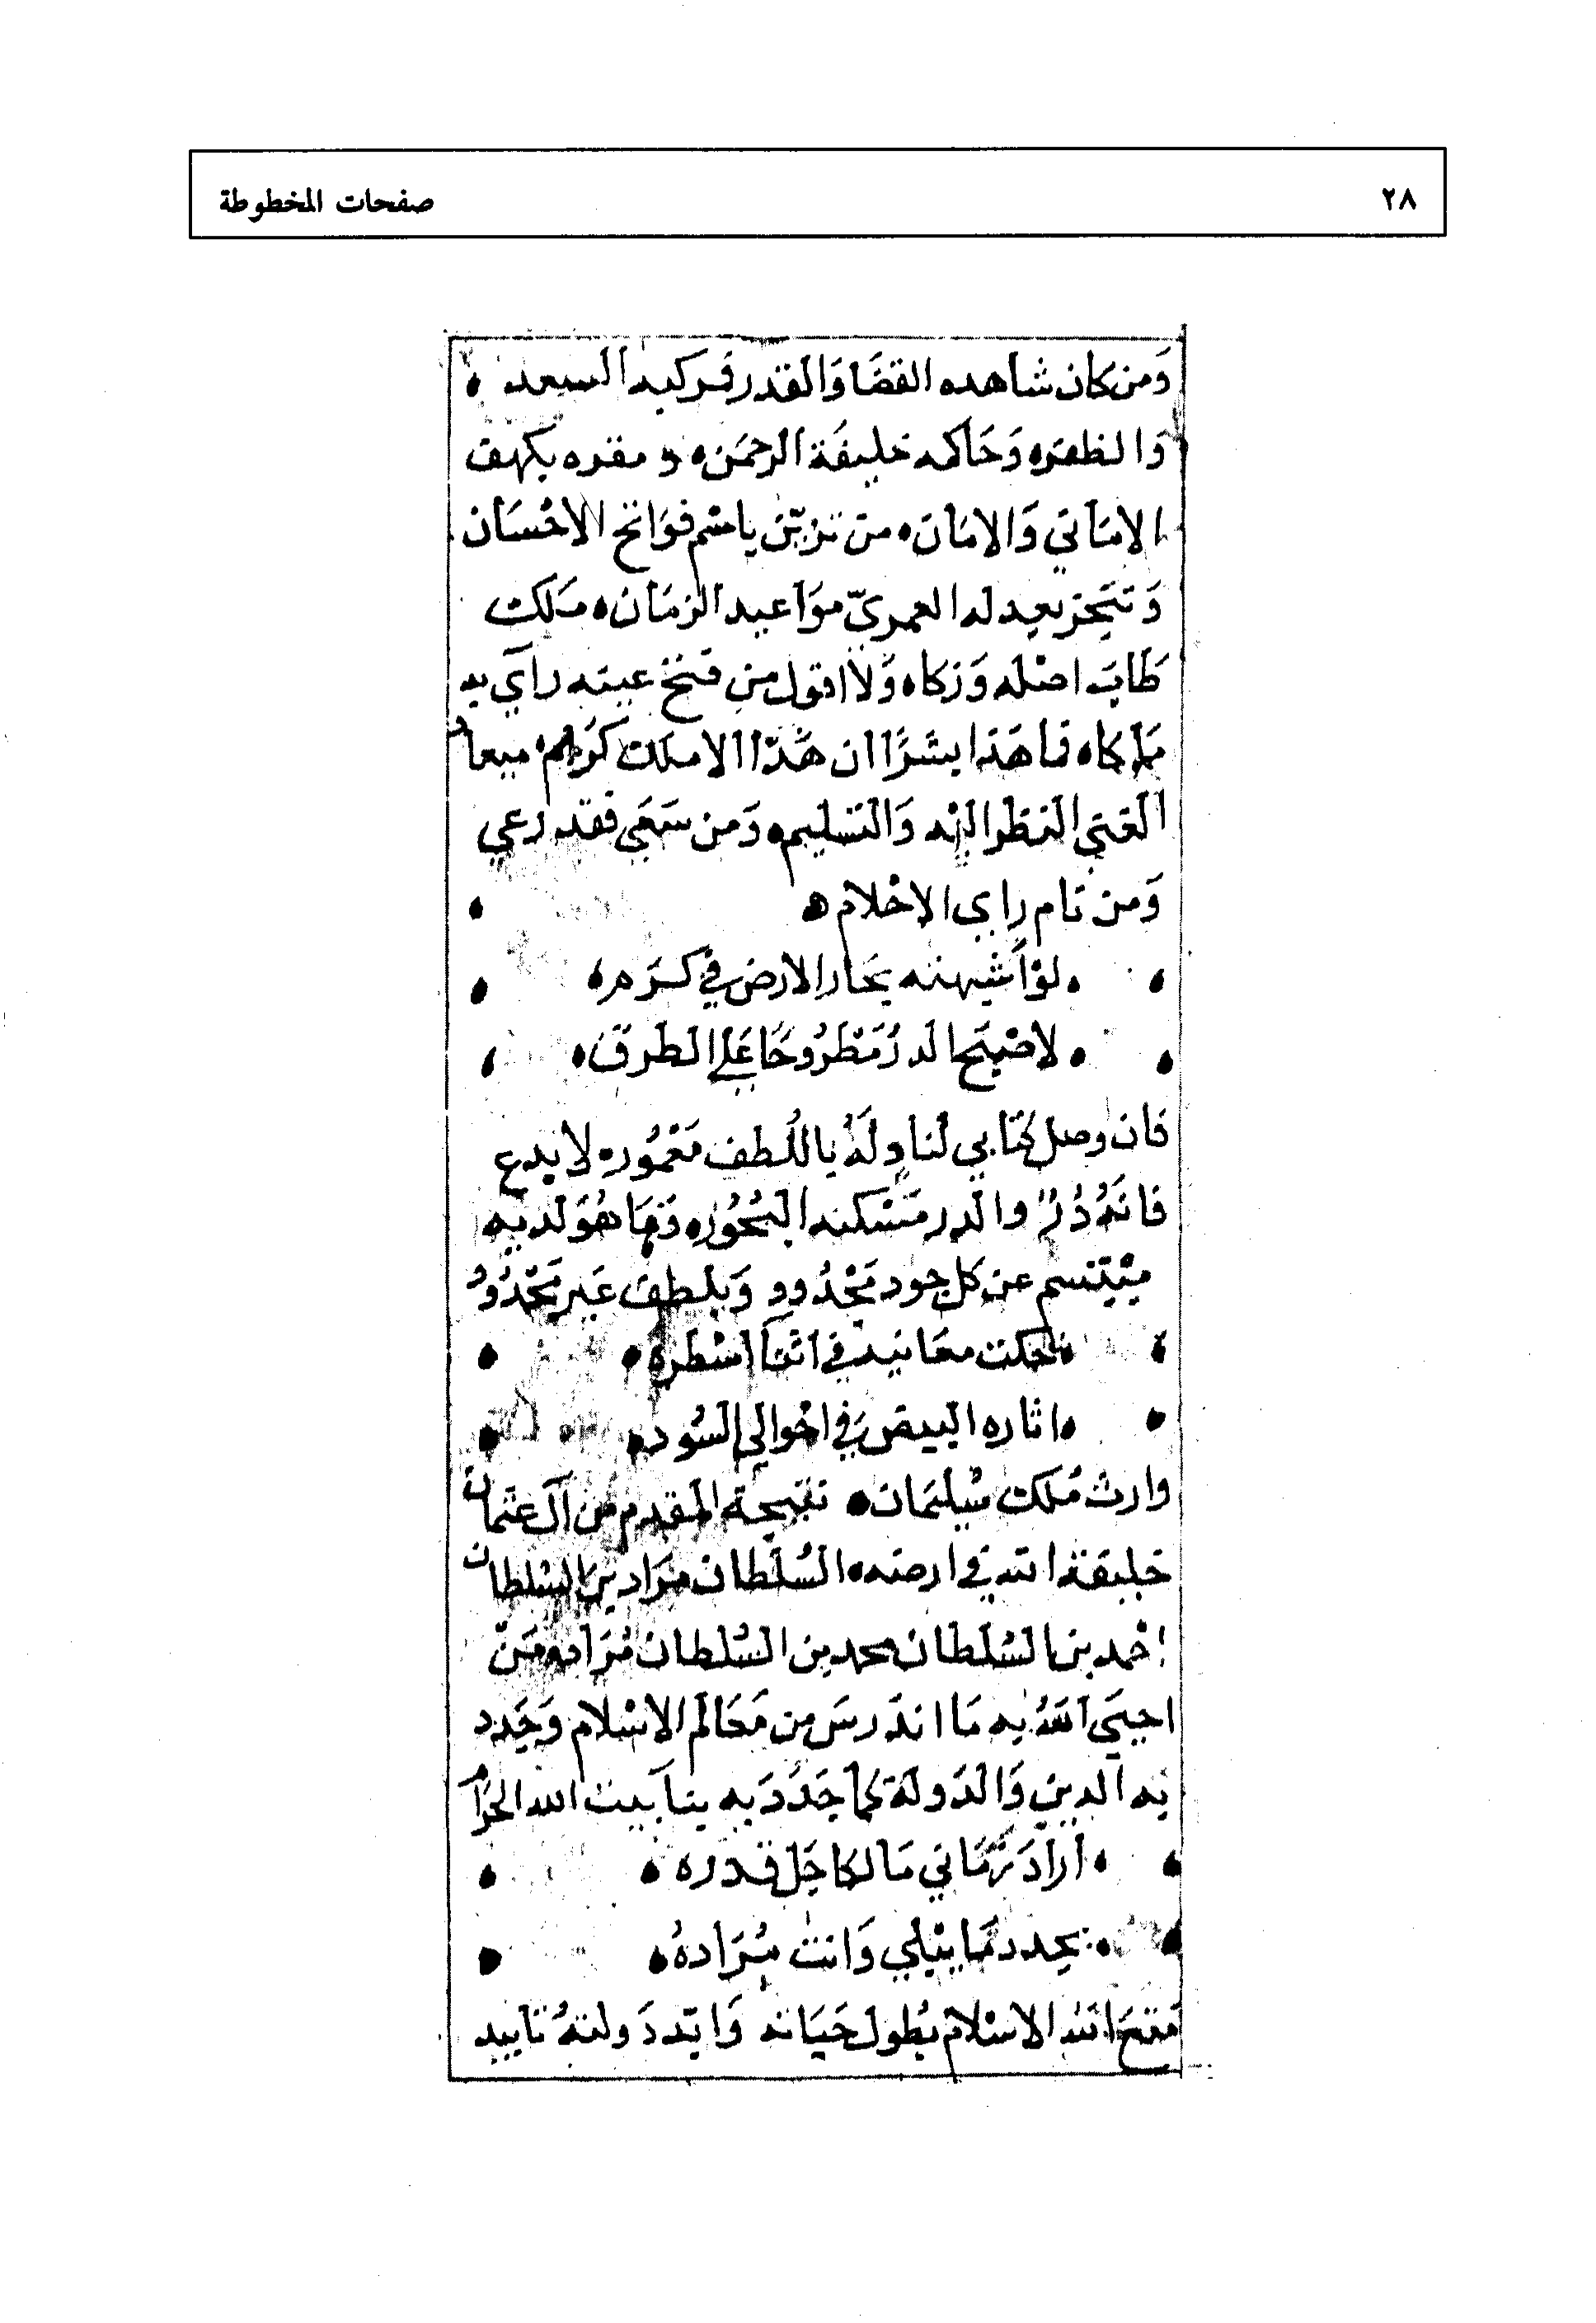 ٢٨
صفحات المخطوطة
وَمن كان شاهده القضَا وَالقدر فركبه السعد
وَالظفر وَحَاكمه خليفَة الرحمَن ومقره بكهف
الامَاني وَالامَان من تزيّن باسْم فوَاتح الاحْسَان
وَتنجز بعدله العمريّ موَاعيد الزمَان مَلك
طَابَ اصْله وَزكاه وَلا اقول من فتح عينه رآي به
مَلاكاه فما هَذا بشرًا ان هَذا الا ملك كريم
الغني النظر اليْه وَالتسْليم وَمن سَعَي فقد رعي
وَمن نام راي الاحْلام
لوْ اشبهته بحَار الارض في كرَمه
لاصْبَح الدرُ مَطرُوحًا عَلي الطرق
فان وصل كتابي لنادِ لَهُ باللُطف مَعْمُوره لا بدع
فانهُ دُرٌ والدر مَسْكنه البُحُوره وَهَا هُوَ لديه
يبْتسم عن كل جود مَجْدُودِ وَبلطف غير مَحْدُودُ
حكت معَانيه في اثنآ اسْطره
اثاره البيض في احْوالي السُود
وارث مُلك سُليمَان نتيجة المقدم من آل عثمان
خليفة الله في ارضه السُلطان مرَاد بن السْلطان
احْمد بن السُلطان محمد بن السُلطان مُرَاد مَن
احيَي اللهُ به مَا اندَرسَ من مَعَالم الاسْلام وَجَدد
به الدين وَالدَولة كمآ جَدَدَ به بنآ بيت الله الحرَام
ارَادَ زَمَاني مَالكا جَل قدره
يجدد مَا يبْلي وَانت مُرَادهُ
مَتعَ الله الاسْلام بطول حَيَاته وَايّد دَولتهُ تاييد